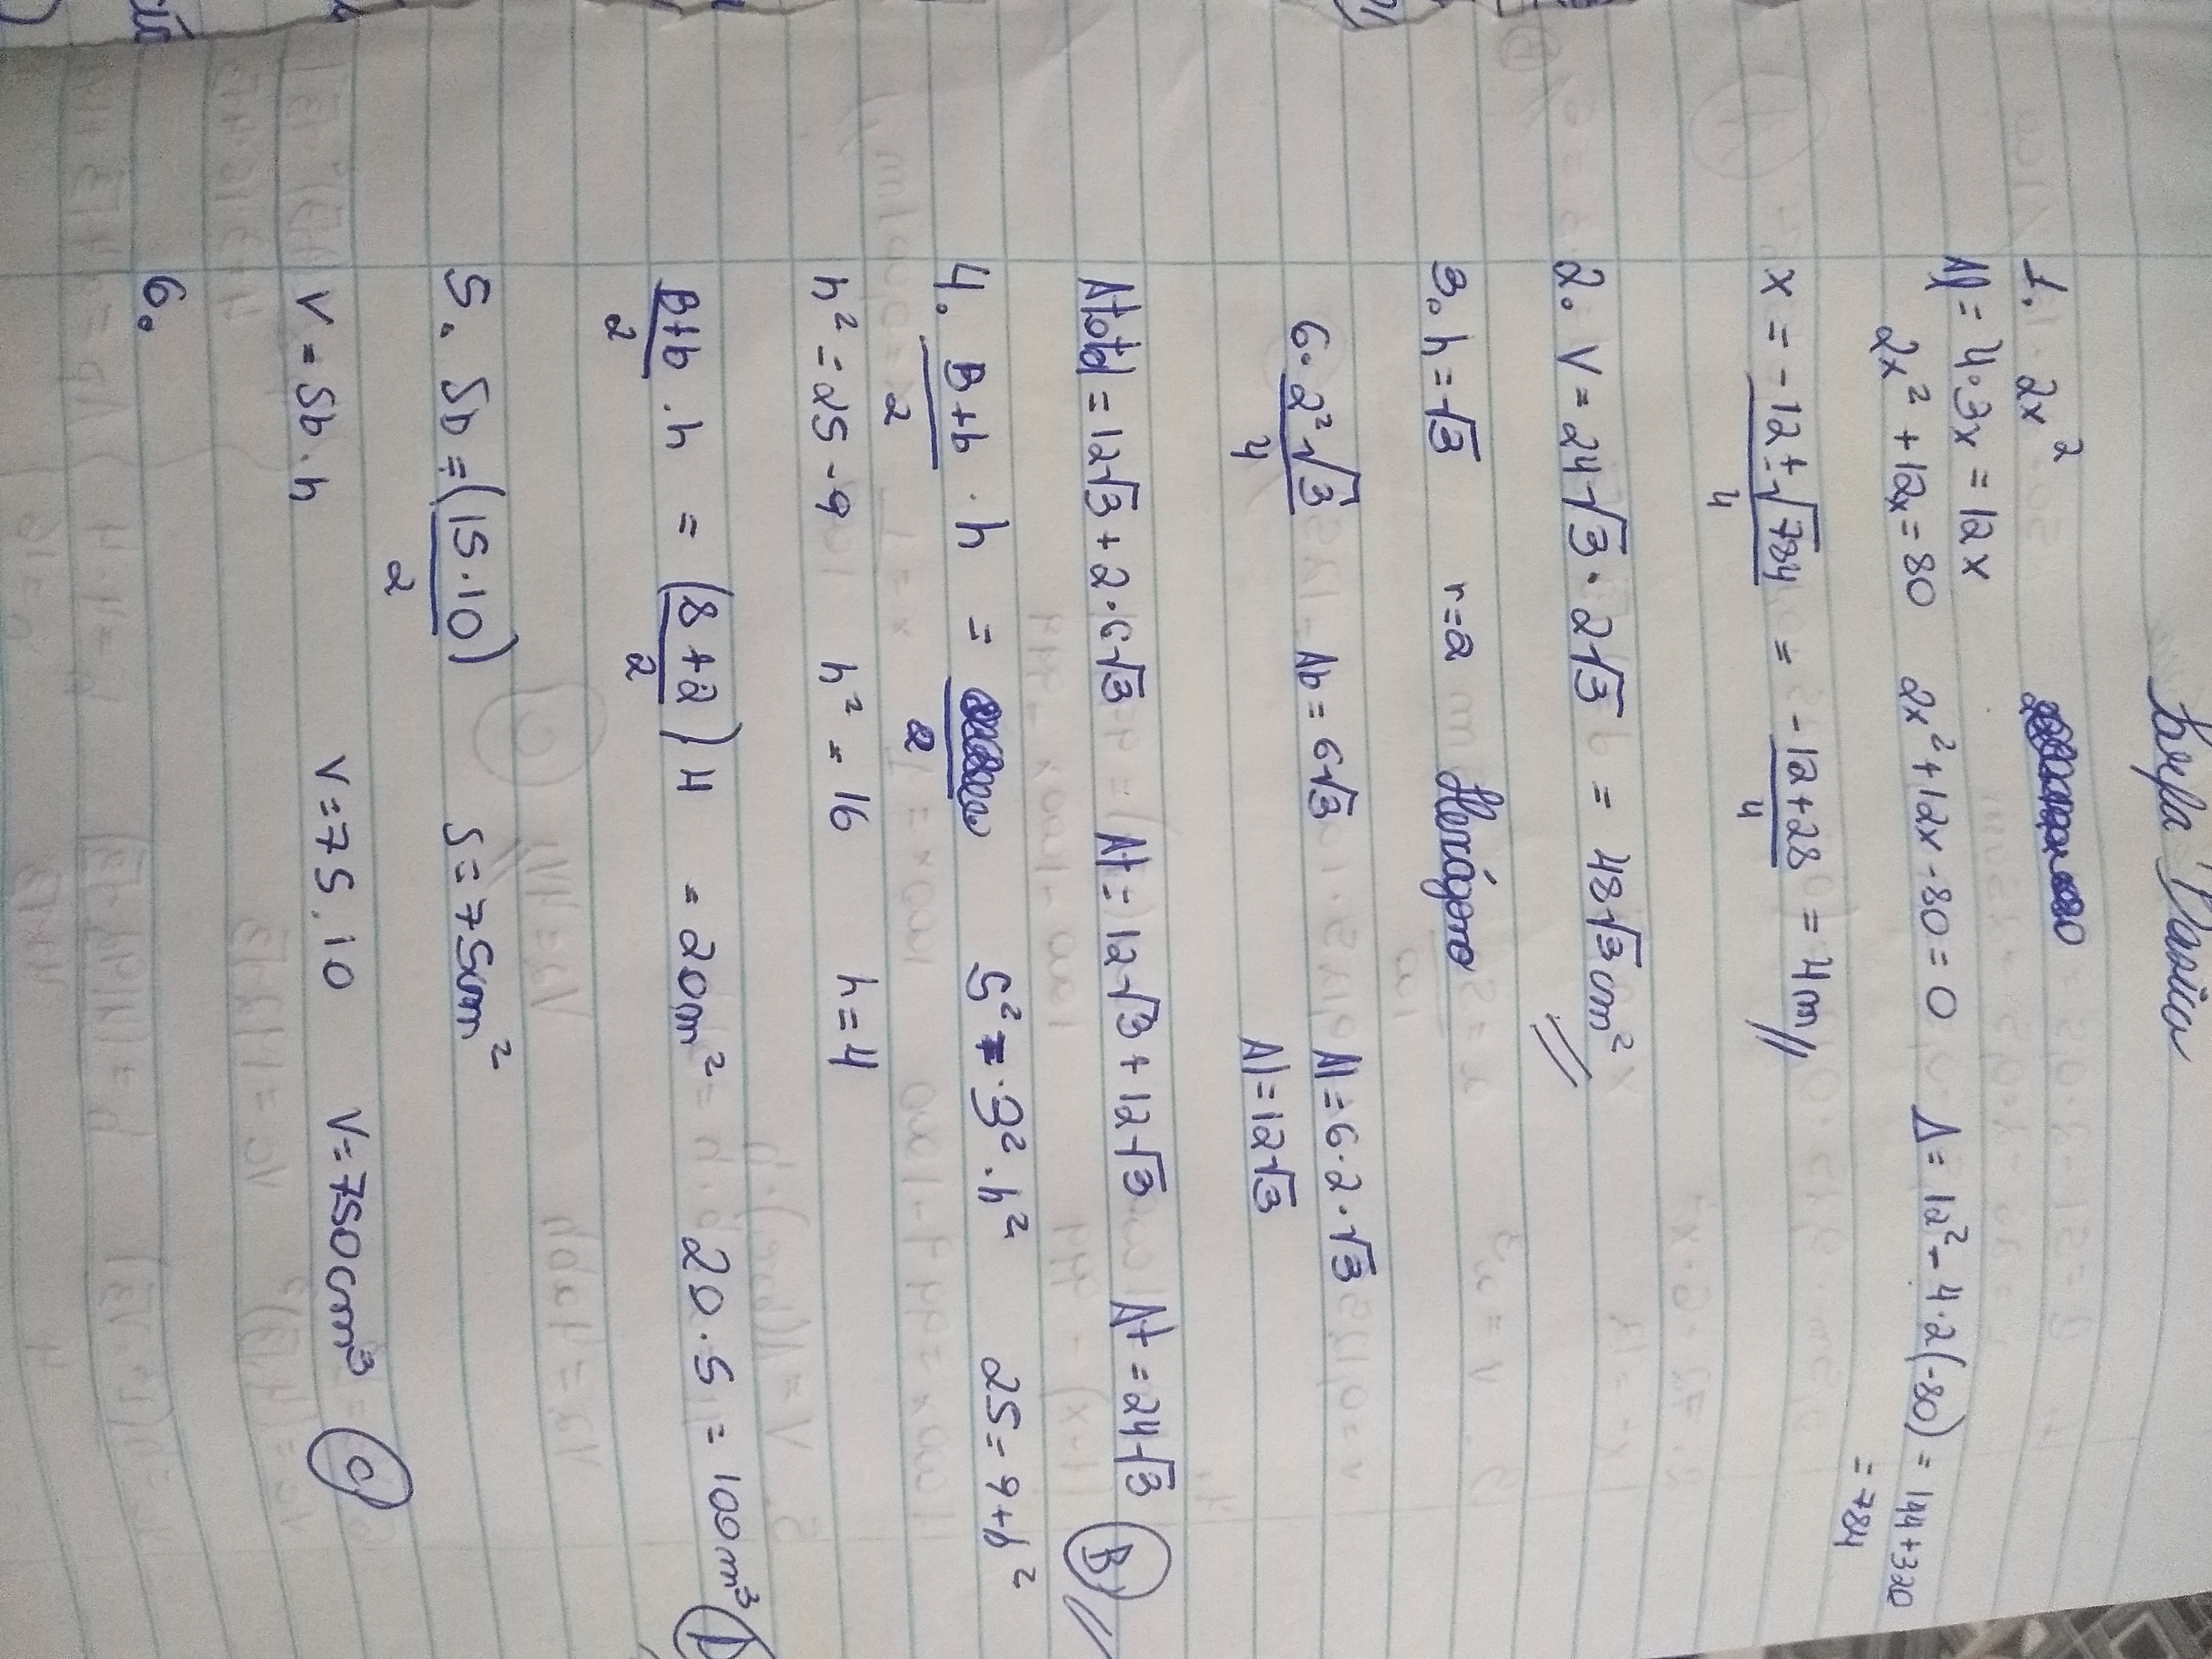 1. 2x²
Al = 4·3x = 12x
2x² + 12x = 80 2x² + 12x - 80 = 0 Δ = 12² - 4·2(-80) = 144 + 320
= 784
x = -12 ± √784 / 4 = -12 + 28 / 4 = 4m //
2. V = 24√3 · 2√3 = 48√3 cm²
3. h = √3 r = 2 Hexágono
6 · 2²√3 / 4 Ab = 6√3 Al = 6·2·√3
Al = 12√3
Atotal = 12√3 + 2·6√3 At = 12√3 + 12√3 At = 24√3 B
4. B+b / 2 · h = 2 5² = 3² · h² 25 = 9 + h²
h² = 25 - 9 h² = 16 h = 4
B+b / 2 · h = (8+2 / 2) 4 = 20m² 20·5 = 100m³ D
5. Sb = (15·10) / 2 S = 75cm²
V = Sb · h V = 75.10 V = 750cm³ C
6.